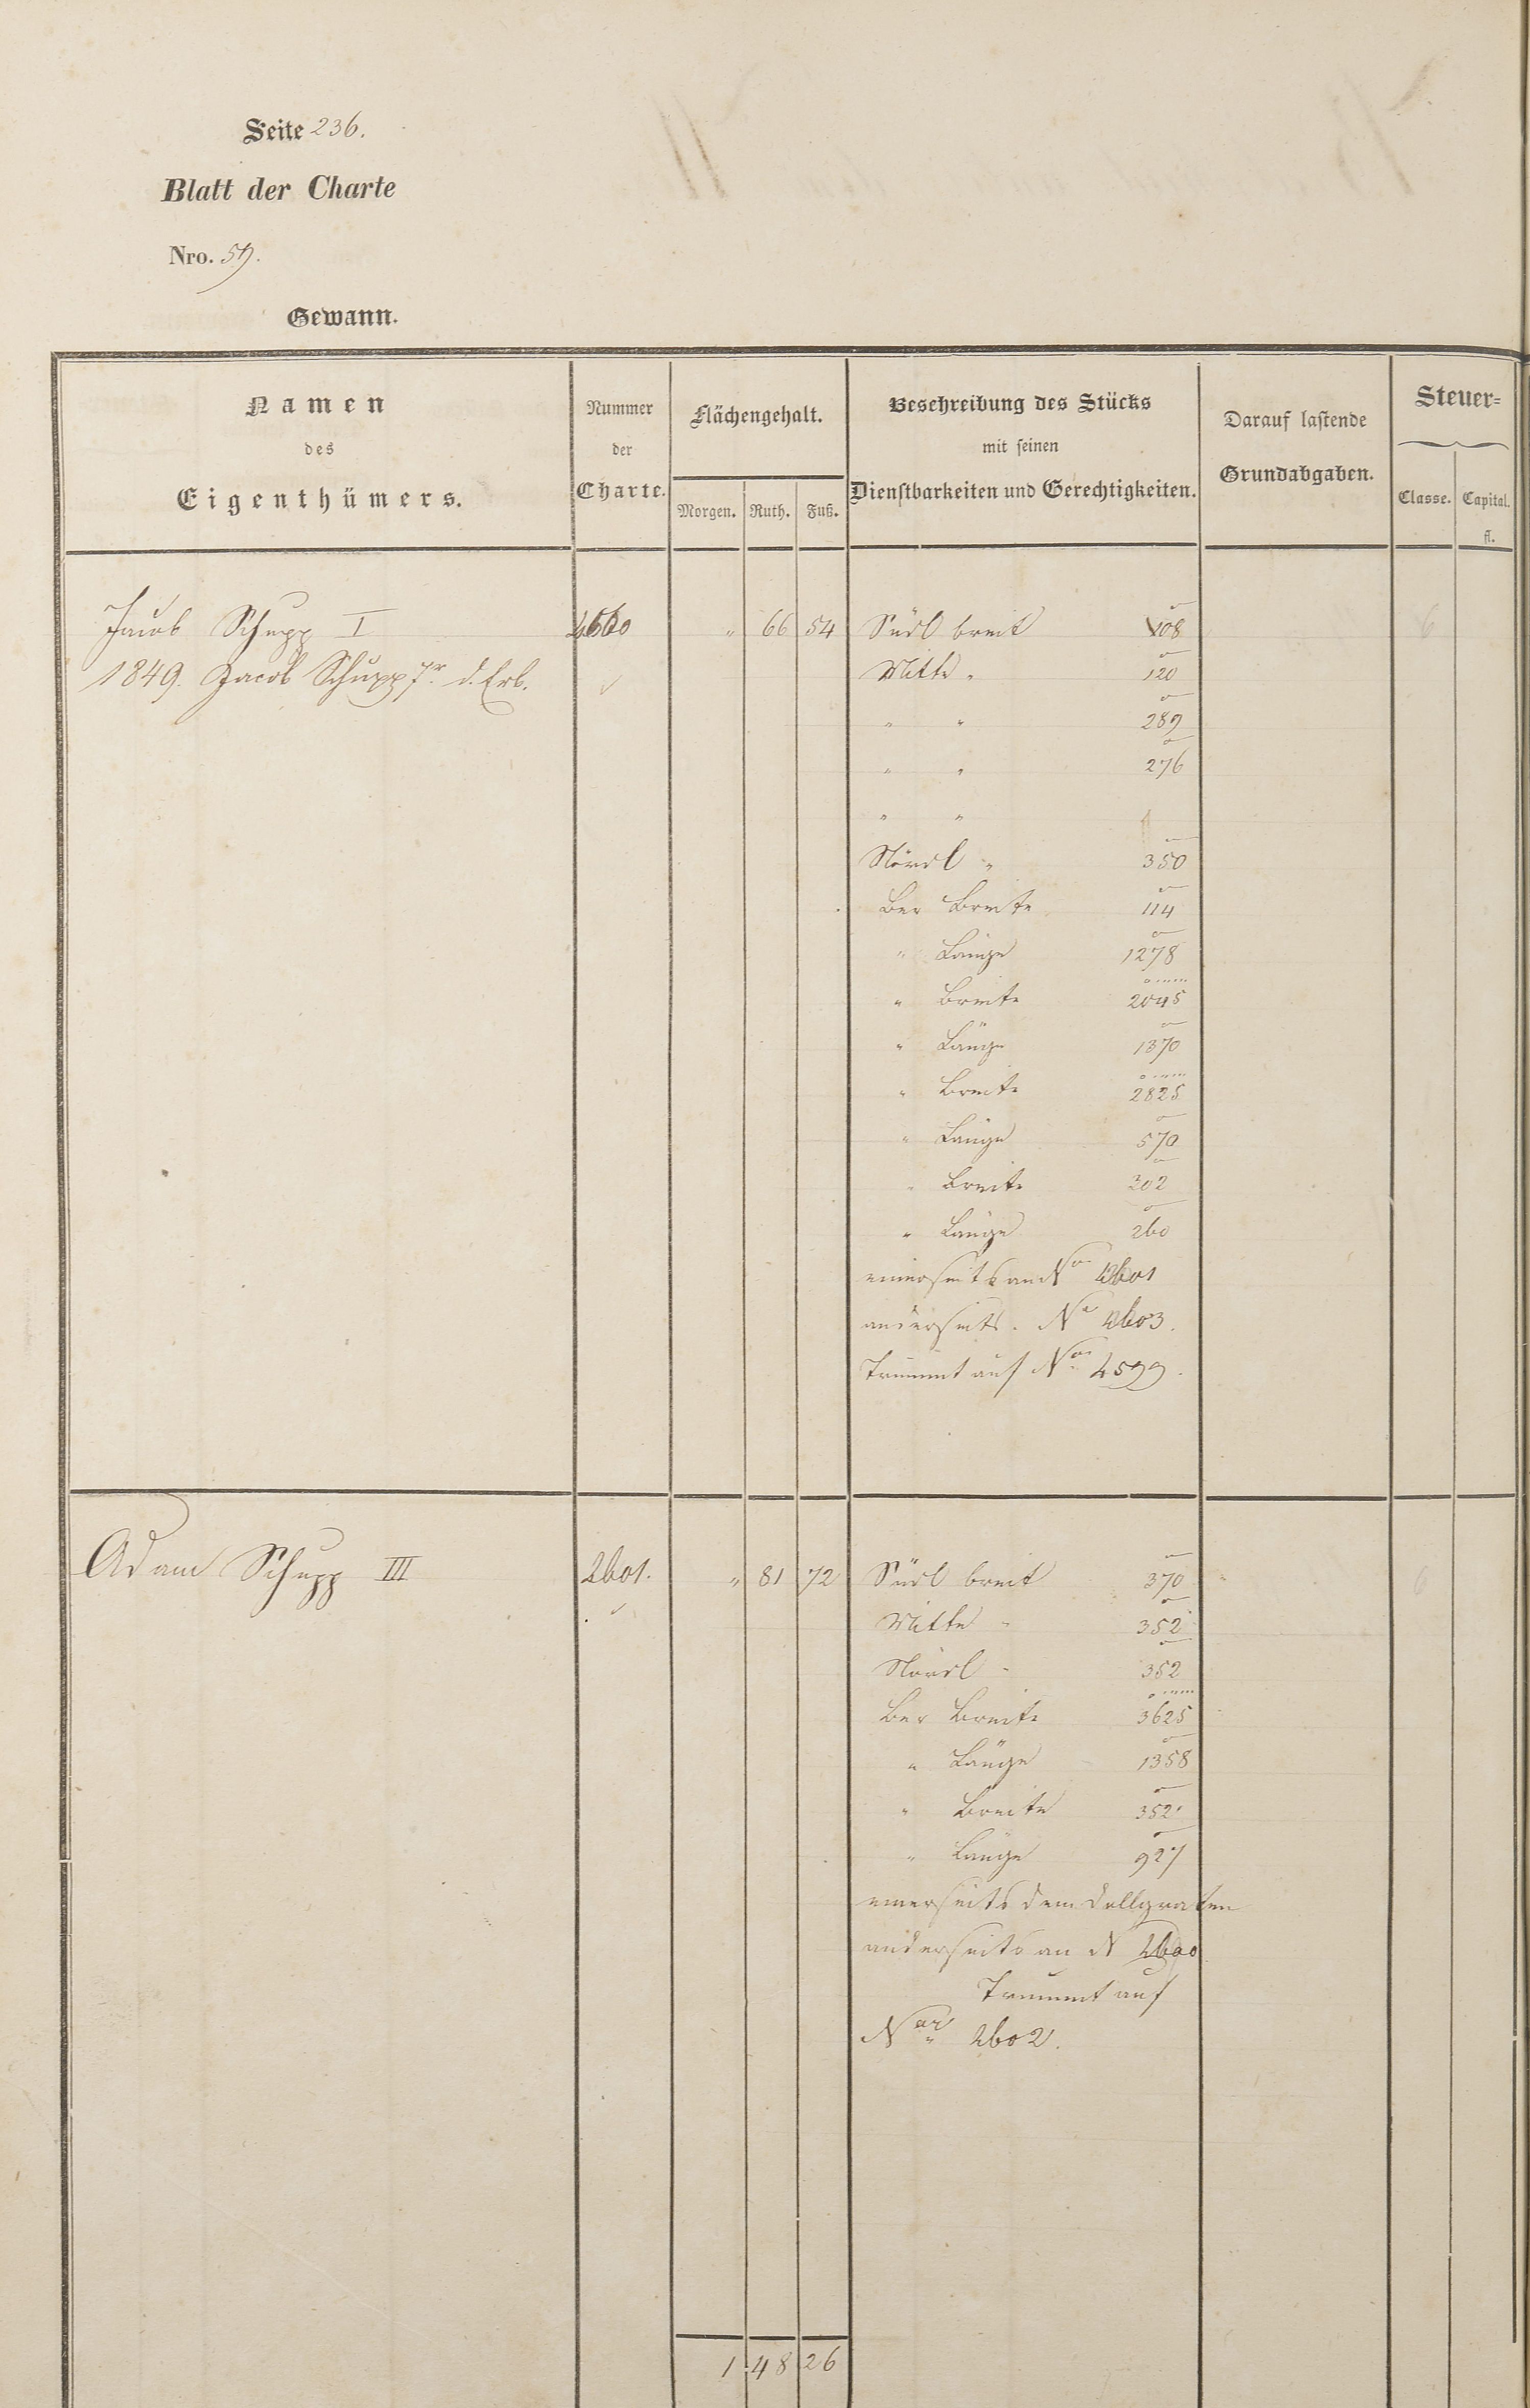 Seite 236.
Blatt der Charte
Nro. 59.
Gewann.
Namen
des
Eigenthümers.
Nummer
der
Charte.
Flächengehalt.
Morgen. Ruth. Fuß.
Beschreibung des Stücks
mit seinen
Dienstbarkeiten und Gerechtigkeiten.
Darauf lastende
Grundabgaben.
Steuer=
Classe. Capital.
fl.
Jacob Schupp I 2600 " 66 54 Südl breit 108 6
1849. Jacob Schupp 7r. d. Erb. Mitte " 120
" " 289
" " 276
" "
Nördl " 350
Ber Breite 114
" Länge 1278
" Breite 2045
" Länge 1370
" Breite 2825
" Länge 570
" Breite 302
" Länge 260
einerseits an Nro 2601
anderseits " Nro 2603.
Trümmt auf Nro 2599.
Adam Schupp III 2601. " 81 72 Südl breit 370 6
Mitte " 352
Nördl " 352
Ber Breite 3625
" Länge 1358
" Breite 352
" Länge 927
einerseits dem Dollgraben
anderseits an N 2600
Trümmt auf
Nro 2602.
1 48 26